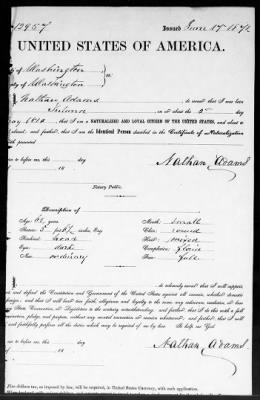 12957 Issued June 17 1872
UNITED STATES OF AMERICA.
y of Washington
y of Washington
Nathan Adams do swear that I was born
in on or about the 2d day
ay 1810 that I am a NATURALIZED AND LOYAL CITIZEN OF THE UNITED STATES, and about to
abroad, and further, that I am the Identical Person described in the Certificate of Naturalization
with presented
n to before me, this day
18
Nathan Adams
Notary Public.
Description of
Age: 62 years Mouth: small
Stature: 5 feet inches, Eng. Chin: round
Forehead: broad Hair: mixed
Eyes: dark Complexion: florid
Nose: ordinary Face: full
do solemnly swear that I will support,
and defend the Constitution and Government of the United States against all enemies, whether domestic
foreign; and that I will bear true faith, allegiance and loyalty to the same, any ordinance, resolution or law
State, Convention, or Legislature to the contrary notwithstanding; and further, that I do this with a full
mination, pledge, and purpose, without any mental reservation or evasion whatsoever; and further, that I will
and faithfully perform all the duties which may be required of me by law. So help me God
n to before me, this day
18
Nathan Adams
Five dollars tax, as imposed by law, will be required, in United States Currency, with each application.